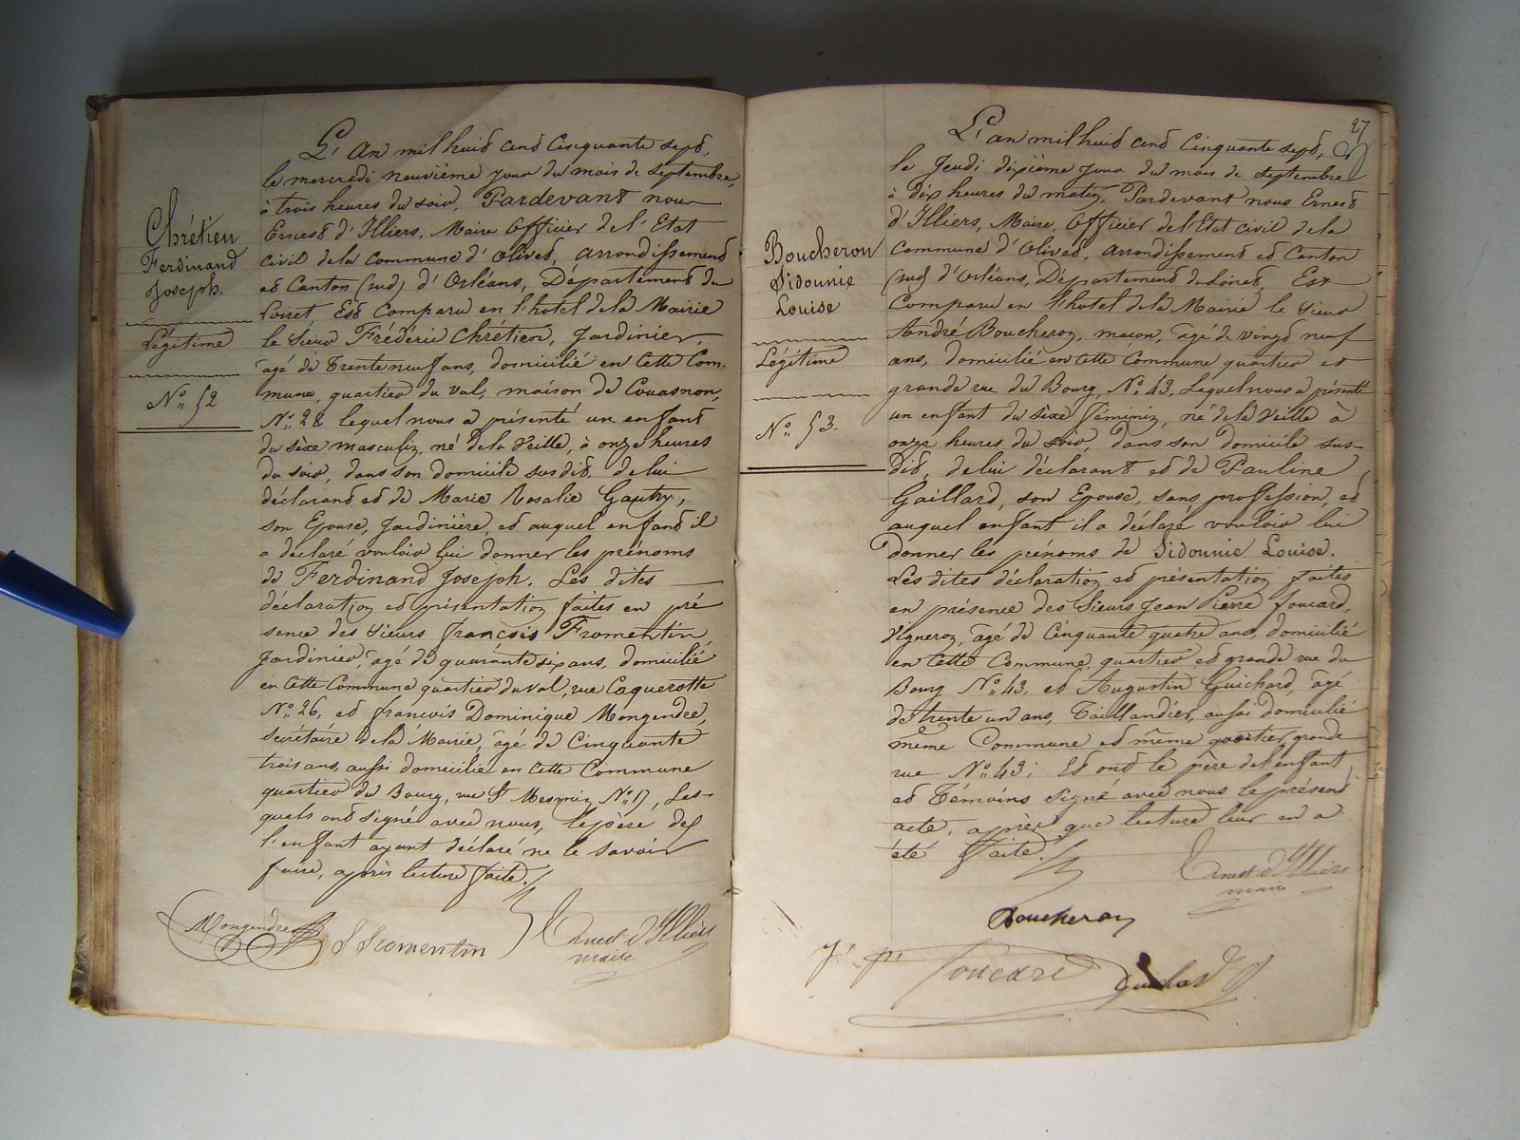 Chrétien
Ferdinand
Joseph.
Légitime
N.º 52
L'An mil huit cent Cinquante sept,
le mercredi neuvième jour du mois de septembre,
à trois heures du soir, Pardevant nous
Ernest d'Illiers, Maire Officier de l'Etat
civil de la Commune d'Olivet, arrondissement
et Canton (sud) d'Orléans, Département du
Loiret Est Comparu en l'hotel de la Mairie
le Sieur Frédéric Chrétien, Jardinier,
âgé de Trente neuf ans, domicilié en cette Com-
mune, quartier du val, maison de Couasnon,
N.º 28 lequel nous a présenté un enfant
du sèxe masculin, né de la veille, à onze heures
du soir, dans son domicile susdit, de lui
déclarant et de Marie Rosalie Gautry,
son Epouse, Jardinière, et auquel enfant il
a déclaré vouloir lui donner les prénoms
de Ferdinand Joseph. Les dites
déclaration et présentation faites en pré
sence des Sieurs françois Fromentin
Jardinier, âgé de quarante six ans, domicilié
en cette Commune quartier du val, rue Caquerotte
N.º 26, et francois Dominique Mongendre,
secrétaire de la Mairie, âgé de Cinquante
trois ans, aussi domicilié en cette Commune
quartier du Bourg, rue St Mesmin N.º 17, Les-
quels ont signé avec nous, le père de
l'enfant ayant déclaré ne le savoir
faire, après lecture faite.
Mongendre
F Fromentin
Ernest d'Illiers
maire
27
Boucheron
Sidounie
Louise
Légitime
N.º 53.
L'an mil huit cent Cinquante sept,
le Jeudi dixième jour du mois de septembre
à dix heures du matin, Pardevant nous Ernest
d'Illiers, Maire, Officier de l'Etat civil de la
Commune d'Olivet, arrondissement et Canton
(sud) d'Orléans, Département du Loiret, Est
Comparu en l'hotel de la Mairie le Sieur
André Boucheron, macon, âgé de vingt neuf
ans, domicilié en cette Commune quartier et
grande rue du Bourg, N.º 43, Lequel nous a présenté
un enfant du sèxe féminin, né de la veille à
onze heures du soir, dans son domicile sus-
dit, de lui déclarant et de Pauline
Gaillard, son Epouse, sans profession, et
auquel enfant il a déclaré vouloir lui
donner les prénoms de Sidounie Louise.
Les dites déclaration et présentation faites
en présence des Sieurs Jean Pierre foucard,
Vigneron, âgé de Cinquante quatre ans, domicilié
en cette Commune, quartier et grande rue du
Bourg N.º 43, et Augustin Guichard, âgé
de trente un ans, Taillandier, aussi domicilié
même Commune et même quartier, grande
rue N.º 43; Et ont le père de l'enfant
et Témoins signé avec nous le présent
acte, après que lecture leur en a
été faite.
Ernest d'Illiers
maire
Boucheron
foucard